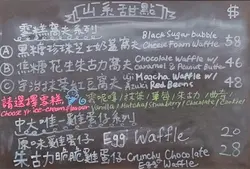 山系甜點 $
雪糕窩夫系列
Ⓐ 黑糖珍珠芝士奶蓋窩夫 Black Sugar bubble Cheese Foam Waffle 58
Ⓑ 焦糖花生朱古力窩夫 Chocolate Waffle w/ Caramel & Peanut Butter 48
Ⓒ 宇治抹茶紅豆窩夫 Uji Maccha Waffle w/ Azuki Red Beans 48
請選擇雪糕 雲呢嗱 / 抹茶 / 士多啤梨 / 朱古力 / 曲奇
Choose Yr ice-cream flavour Vanilla / Matcha / Strawberry / Chocolate / Cookies
中大唯一雞蛋仔系列
原味雞蛋仔 Egg Waffle 20
朱古力脆脆雞蛋仔 Crunchy Chocolate Egg Waffle 28